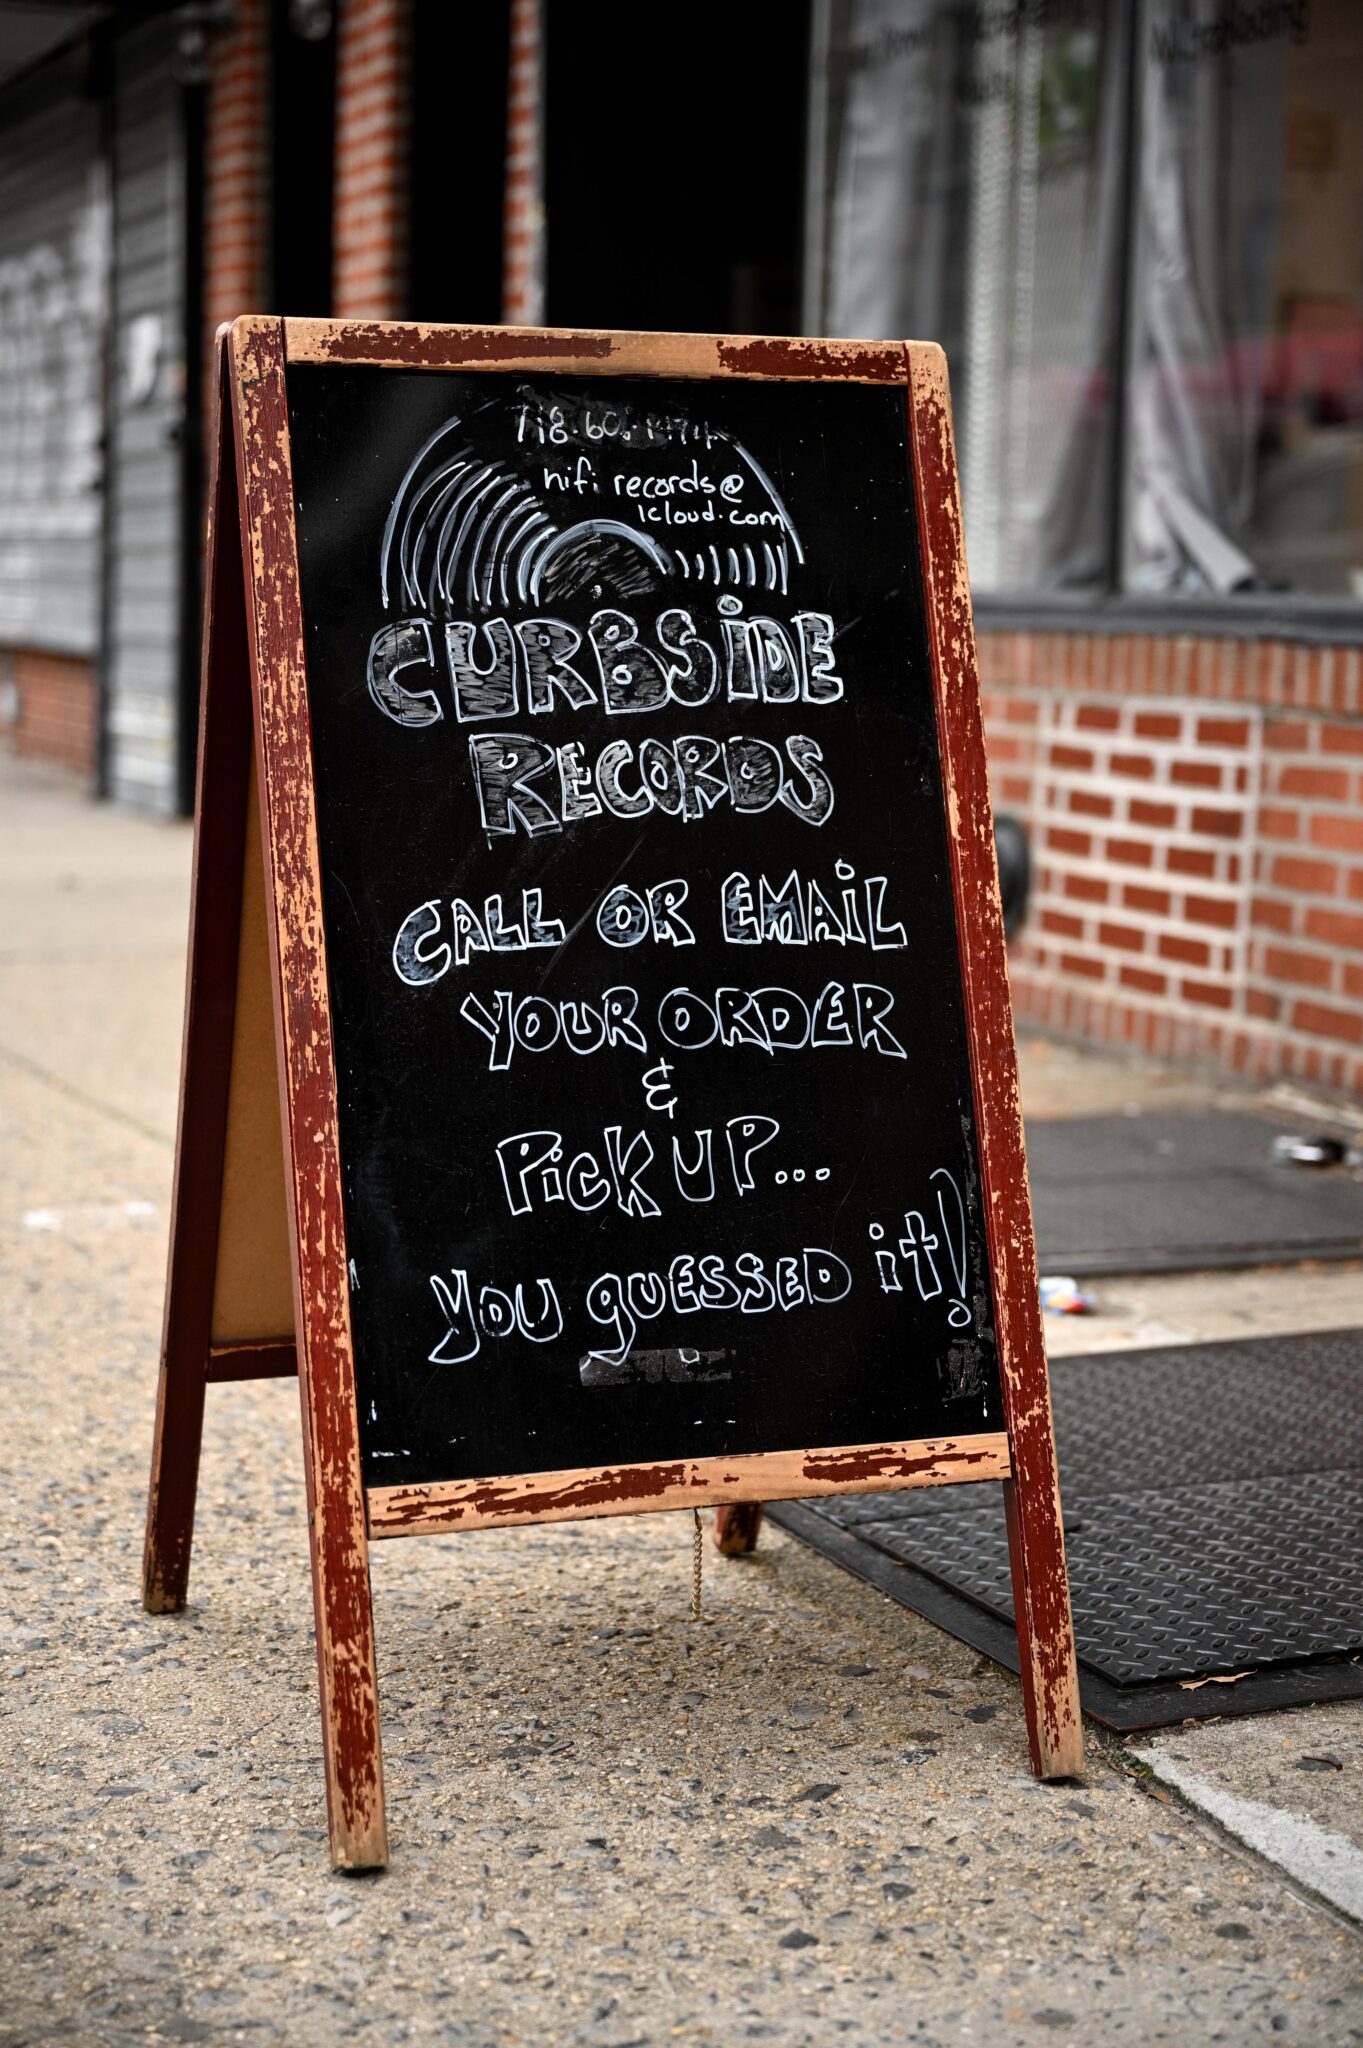 hifi records@
icloud.com
CURBSiDE
RECORDS
CALL OR EMAiL
YOUR ORDER
&
PiCK UP...
you guESSED it!